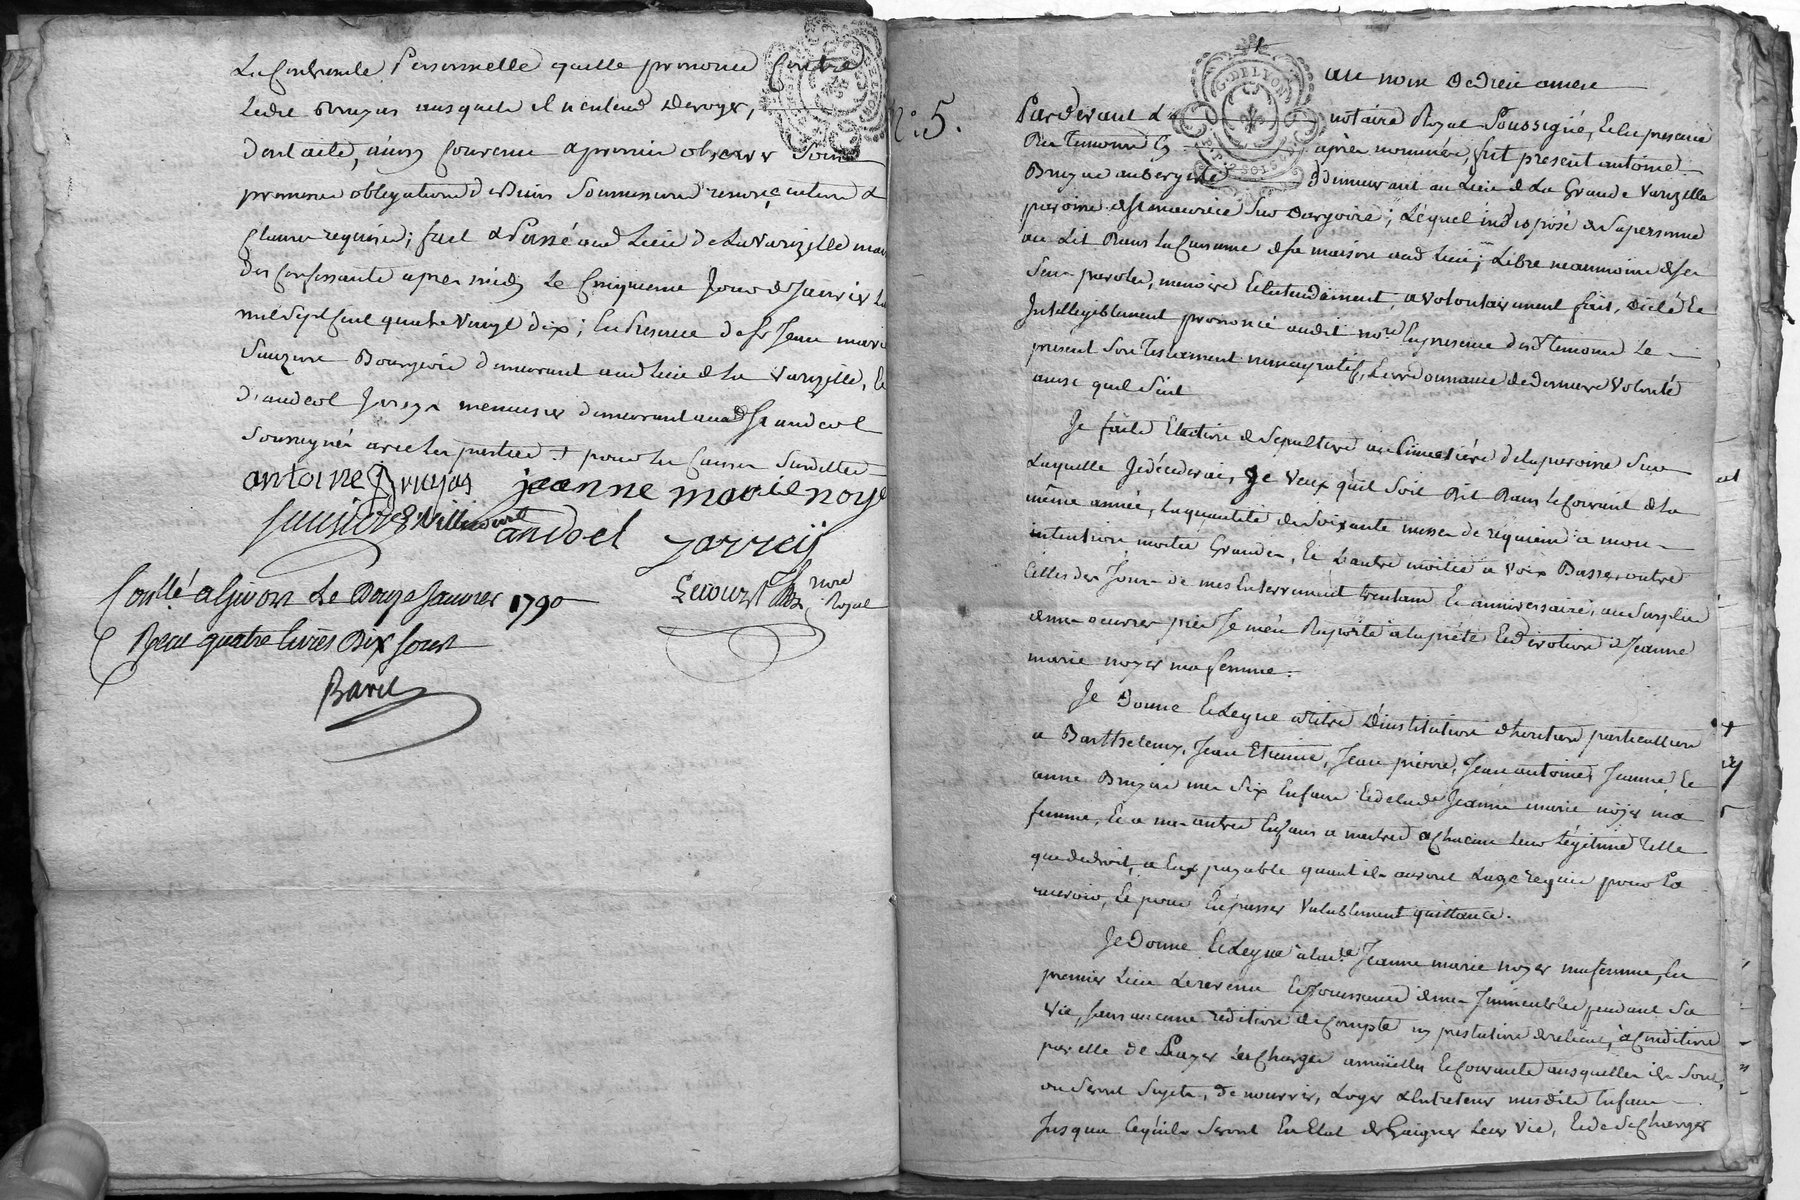 La Contrainte Personnelle quelle prononce Contre
Ledit Bruyas ausquels il n'entend Deroger,
Dont acte, ainsy Convenu a promis observer Sous
promesse obligation de Biens Soumissions renonçiation &
Clauses requises; fait & Passé aud Lieu de La Varizelle maison
Des Confessants apres midy Le Cinquieme Jour de Janvier
mil Sept Cent quatre Vingt dix; En Presence de Sr Jean marie
Bourgeois demeurant aud lieu de La Varizelle, Et
D'andeol menuisier demeurant aud St andeol
Soussignés avec les parties + pour les Causes Susdittes
antoine Bruyas jeanne marie noye
andoel
Conllé a Givors Le Douze Janvier 1790
Lecourt nore Royal
Reçu quatre livres Dix sous
Baril
G. DE LYON
au nom de Dieu amen
N°. 5.
Pardevant Le notaire Royal Soussigné, Et En presence
Des Temoins Cy après nommés, fut present antoine
Bruyas aubergiste demeurant au Lieu de La Grande Varizelle
paroisse de St maurice Sur Dargoire; Lequel indisposé de Sa personne
au Lit Dans La Cuisine de Sa maison aud Lieu; Libre neanmoins de Ses
Sens parole, memoire Et Entendement, a Volontairement fait, Dicté Et
Intelligiblement prononcé audit nore. En presence desd Temoins Le
present Son Testament nuncupatif, Et ordonnance de derniere Volonté
ainsi quil Suit
Je faits Election de Sepulture au Cimetière de la paroisse Sur
Laquelle Je décederai, Je Veux qu'il Soit Dit Dans Le Courant de La
même année, La quantité de Soixante messes de requiem a mon
intention moitié Grandes, Et L'autre moitié a Voix Basses outre
Celles des Jours de mes Enterrement trentain Et anniversaire, au Surplus
de mes oeuvres pies Je m'en Rapporte à la piété Et Devotion de Jeanne
marie noyer ma femme.
Je Donne Et Legue a titre D'institution d'heritiers particuliers
a Barthelemy, Jean Etienne, Jean pierre, Jean antoine, Jeanne, Et
anne Bruyas mes Six Enfans Et de Lade Jeanne marie noyer ma
femme, Et a mes autres Enfans a naitre a Chacun Leur Légitime Telle
que de droit, a Eux payable quant ils auront L'age requis pour La
recevoir, Et pour En passer Valablement quittance.
Je Donne Et Legue à Lade Jeanne marie noyer ma femme, En
premier Lieu Le revenu Et Jouissance de mes Immeubles pendant Sa
Vie, Sans aucune redition de Compte ny prestation de reliquat, à Condition
par elle de Payer Les Charges annuelles Et Courantes ausquelles ils Sont
ou Seront Sujets, de nourrir, Loger & Entretenir mesdits Enfans
Jusqua Cequ'ils Seront En Etat de Gaigner Leur Vie, Et de Se Charger